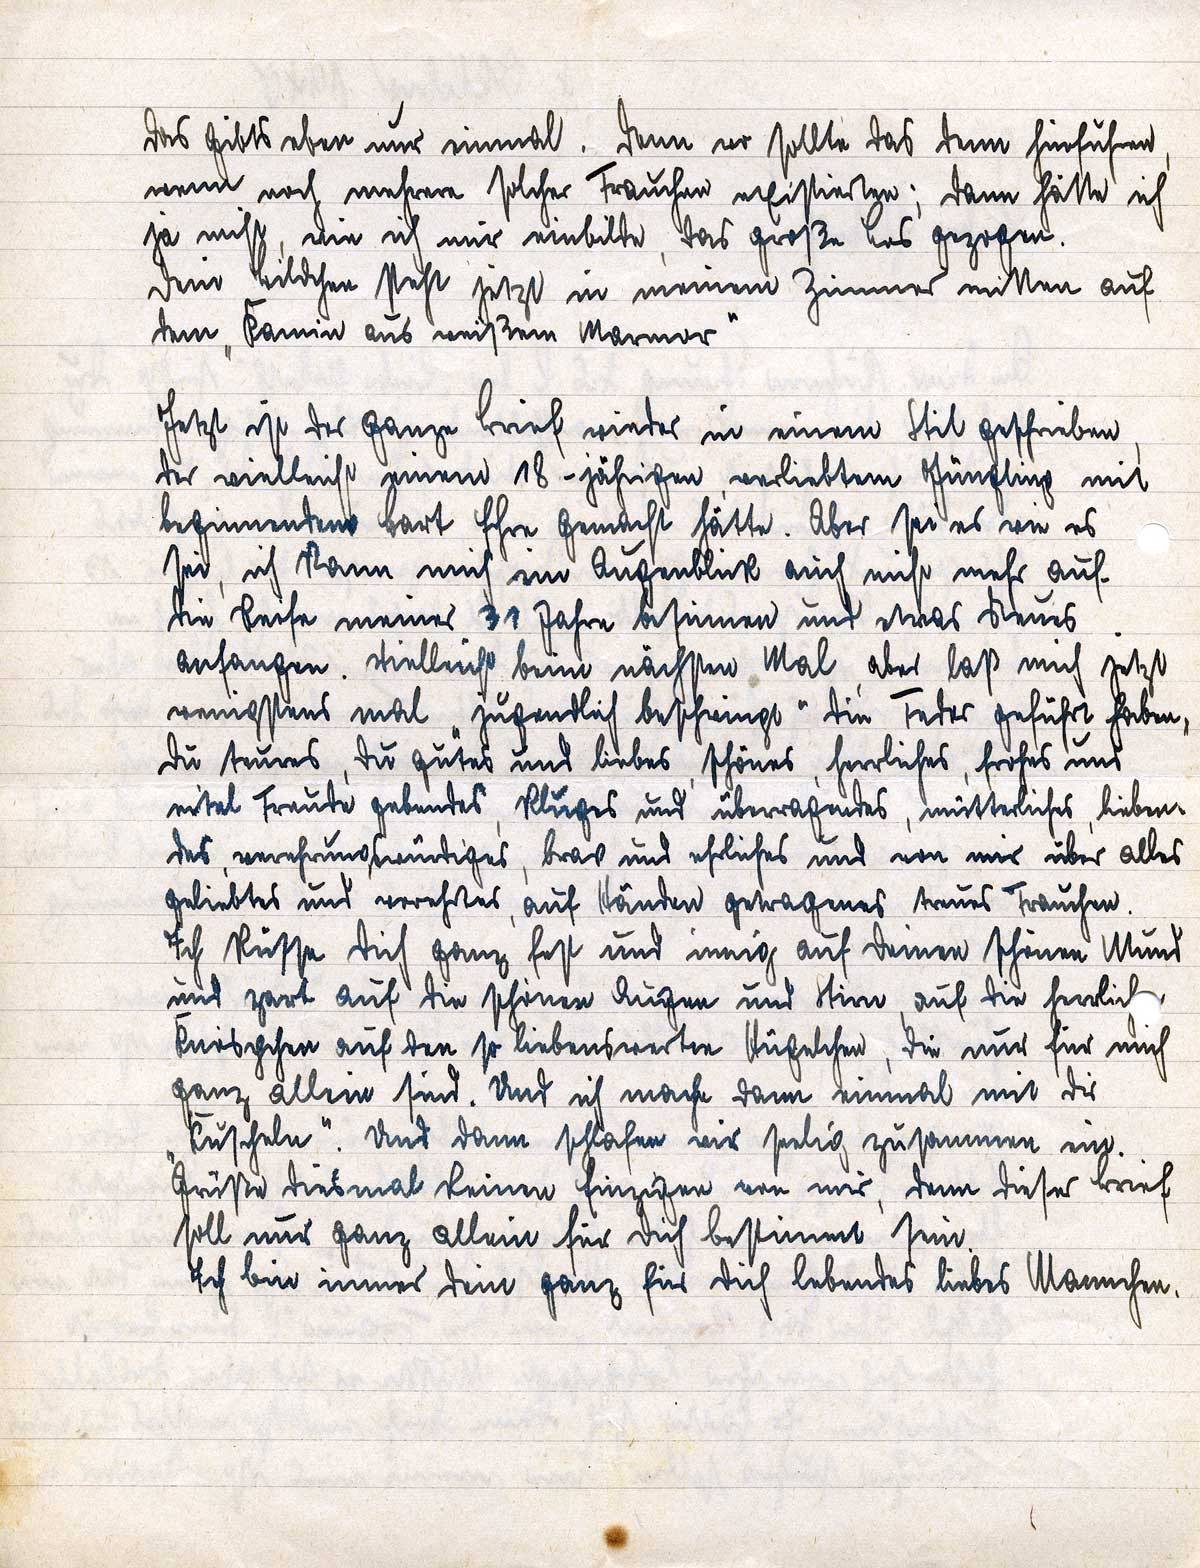 das gibts eben nur einmal. Denn wo sollte das denn hinführen,
wenn noch mehrere solcher Frauchen existierten; dann hätte ich
ja nicht, wie ich mir einbilde, das große Los gezogen.
Dein Bildchen steht jetzt in meinem Zimmer mitten auf
dem „Kamin aus weißem Marmor"
Jetzt ist der ganze Brief wieder in einem Stil geschrieben,
der vielleicht einem 18-jährigen, verliebtem Jüngling mit
beginnendem Bart Ehre gemacht hätte. Aber sei es wie es
sei, ich kann mich im Augenblick auch nicht mehr auf
die Reife meiner 31 Jahre besinnen und etwas Neues
anfangen. Vielleicht beim nächsten Mal, aber laß mich jetzt
wenigstens mal „jugendlich beschwingt" die Feder geführt haben,
Du teures, Du gutes und liebes, schönes, herrliches, frohes und
eitel Freude gebendes, kluges und überragendes, mütterliches, lieben-
des, verehrungswürdiges, brav und ehrliches und von mir über alles
geliebtes und verehrtes, auf Händen getragenes treues Frauchen.
Ich küsse Dich ganz fest und innig auf Deinen schönen Mund
und zart auf die schönen Augen und Stirn, auf die herrlich
Knöspchen auf den so liebenswerten Hügelchen, die nur für mich
ganz allein sind. Und ich mache dann einmal mit Dir
„Kuscheln". Und dann schlafen wir seelig zusammen ein.
Grüße diesmal keinen Einzigen von mir, denn dieser Brief
soll nur ganz allein für Dich bestimmt sein.
Ich bin immer Dein ganz für Dich lebendes liebes Mannchen.